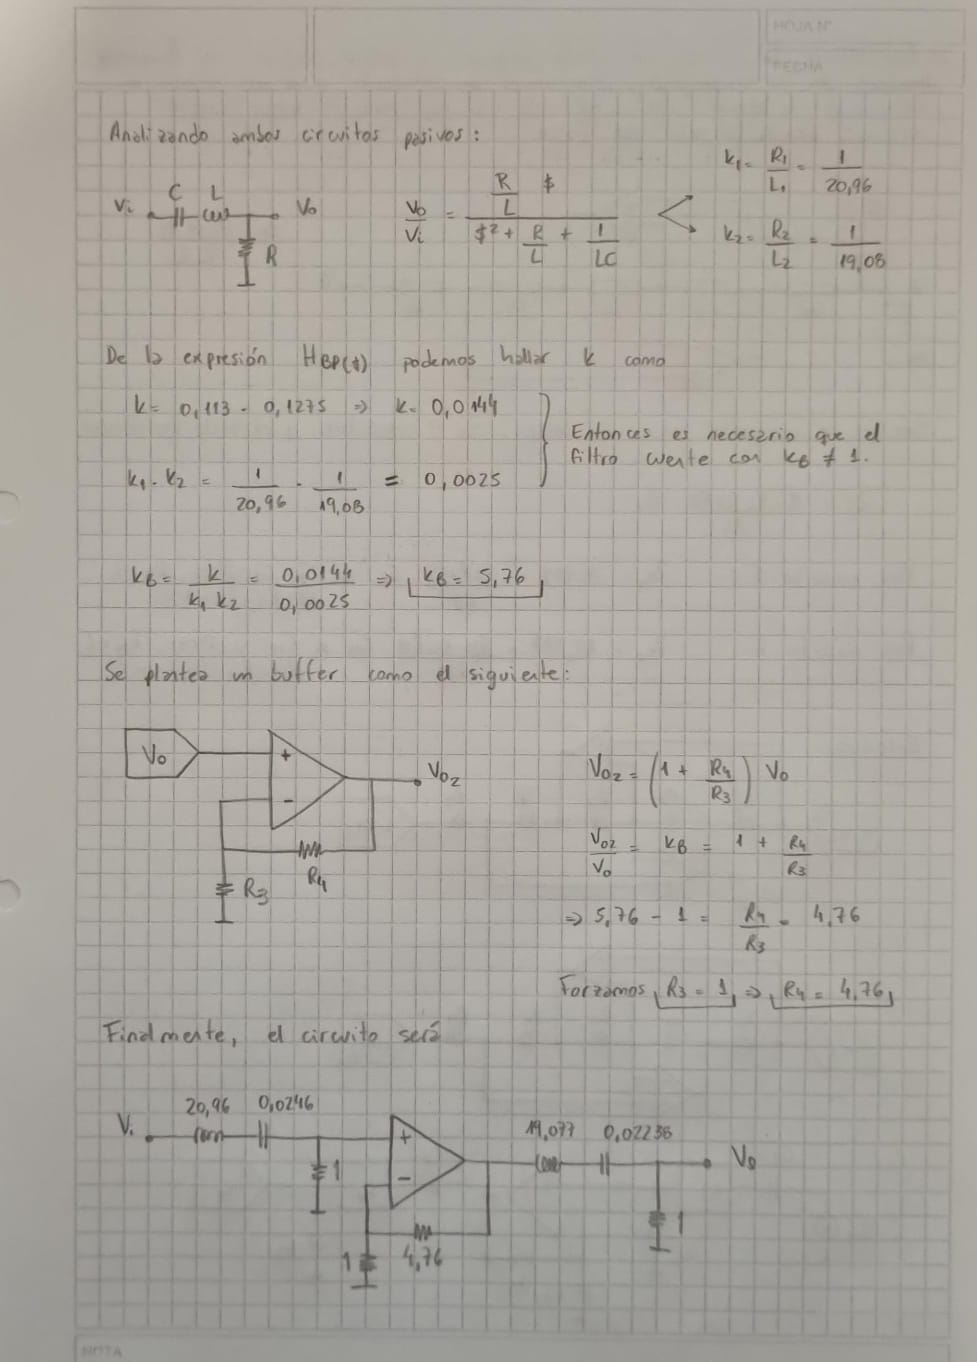 HOJA N°
FECHA
Analizando ambos circuitos pasivos:
Vi C L Vo R
Vo/Vi = (R/L $) / ($² + R/L + 1/LC)
k1 = R1/L1 = 1/20,96
k2 = R2/L2 = 1/19,08
De la expresión HBP($) podemos hallar k como
k = 0,113 · 0,1275 ⇒ k = 0,0144
k1 · k2 = 1/20,96 · 1/19,08 = 0,0025
Entonces es necesario que el
filtro cuente con kB ≠ 1.
kB = k/(k1 k2) = 0,0144/0,0025 ⇒ kB = 5,76
Se plantea un buffer como el siguiente:
Vo + - Vo2 R4 R3
Vo2 = (1 + R4/R3) Vo
Vo2/Vo = kB = 1 + R4/R3
⇒ 5,76 - 1 = R4/R3 = 4,76
Forzamos R3 = 1 ⇒ R4 = 4,76
Finalmente, el circuito será
Vi 20,96 0,0246 1 + - 1 4,76 19,077 0,02236 1 Vo
NOTA